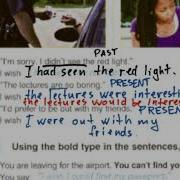 PAST
"I'm sorry. I didn't see the red light."
I wish I had seen the red light.
"The lectures are so boring." PRESENT
I wish the lectures were interesti
the lectures would be interes
"I'd prefer to be out with my friends." PRESENT
I wish I were out with my
friends.
Using the bold type in the sentences,
You are leaving for the airport. You can't find yo
You say "I wish I could find my passport."